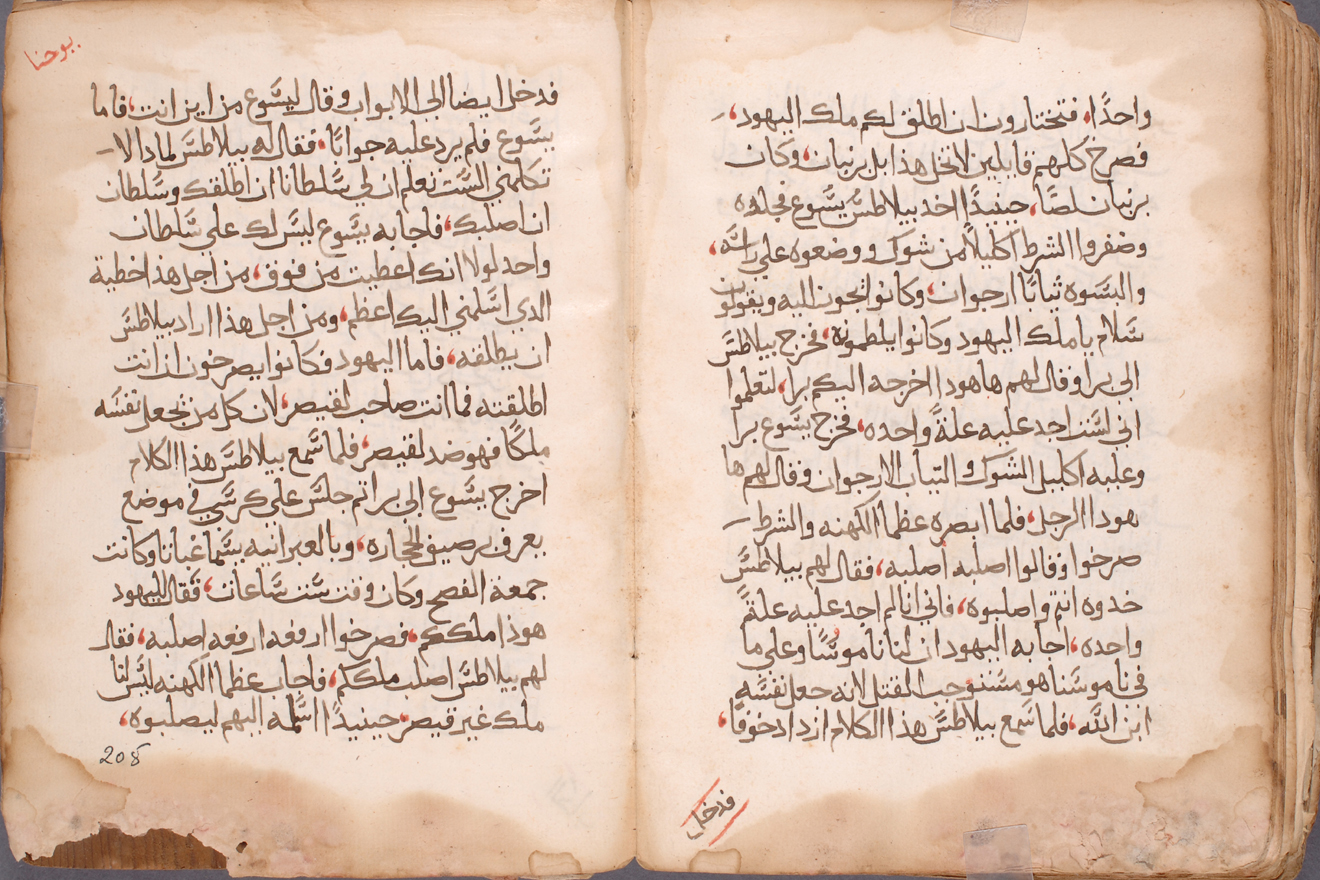 واحدًا، فتختارون ان اطلق لكم ملك اليهود،
فصرخ كلهم قايلين لا تخل هذا بل برنبان، وكان
برنبان لصًا، حينيذًا اخد بيلاطس يسوع فجلده
وضفروا الشرط اكليلًا من شوك ووضعوه علي راسه،
والبسوه ثيابًا ارجوان، وكانوا يجون اليه ويقولون
سلام يا ملك اليهود وكانوا يلطمونه، فخرج بيلاطس
الى برا وقال لهم ها هودا اخرجه اليكم برا، لتعلموا
اني لست اجد عليه علةً واحده، فخرج يسوع برا
وعليه اكليل الشوك والتياب الارجوان وقال لهم ها
هودا الرجل، فلما ابصره عظما الكهنه والشرط
صرخوا وقالوا اصلبه اصلبه، فقال لهم بيلاطس
خدوه انتم واصلبوه، فاني انا لم اجد عليه علةً
واحده، اجابه اليهود ان لنا ناموسًا وعلي ما
في ناموسنا هو مستوجب القتل لانه جعل نفسه
ابن الله، فلما سمع بيلاطس هذا الكلام ازداد خوفًا،
فدخل
يوحنا
فدخل ايضا الي الابواب وقال ليسوع من اين انت، فاما
يسوع فلم يرد عليه جوابًا، فقال له بيلاطس لمادا لا
تكلمني الست تعلم ان لي سلطانا ان اطلقك وسلطان
ان اصلبك، فاجابه يسوع ليس لك علي سلطان
واحد لولا انك اعطيت من فوق، من اجل هذا خطية
الدي اسلمني اليك اعظم، ومن اجل هذا اراد بيلاطس
ان يطلقه، فاما اليهود فكانوا يصرخون ان انت
اطلقته فما انت صاحب لقيصر، لان كل من يجعل نفسه
ملكًا فهو ضد لقيصر، فلما سمع بيلاطس هذا الكلام
اخرج يسوع الى برا تم جلس علي كرسي في موضع
يعرف برصيف الحجاره، وبالعبرانيه يسما غباتا وكانت
جمعة الفصح وكان وقت ست ساعات، فقال لليهود
هوذا ملككم، فصرخوا ارفعه ارفعه اصلبه، فقال
لهم بيلاطس اصلب ملككم، فاجاب عظما الكهنه ليس لنا
ملك غير قيصر، حينيذًا اسلمه اليهم ليصلبوه،
208